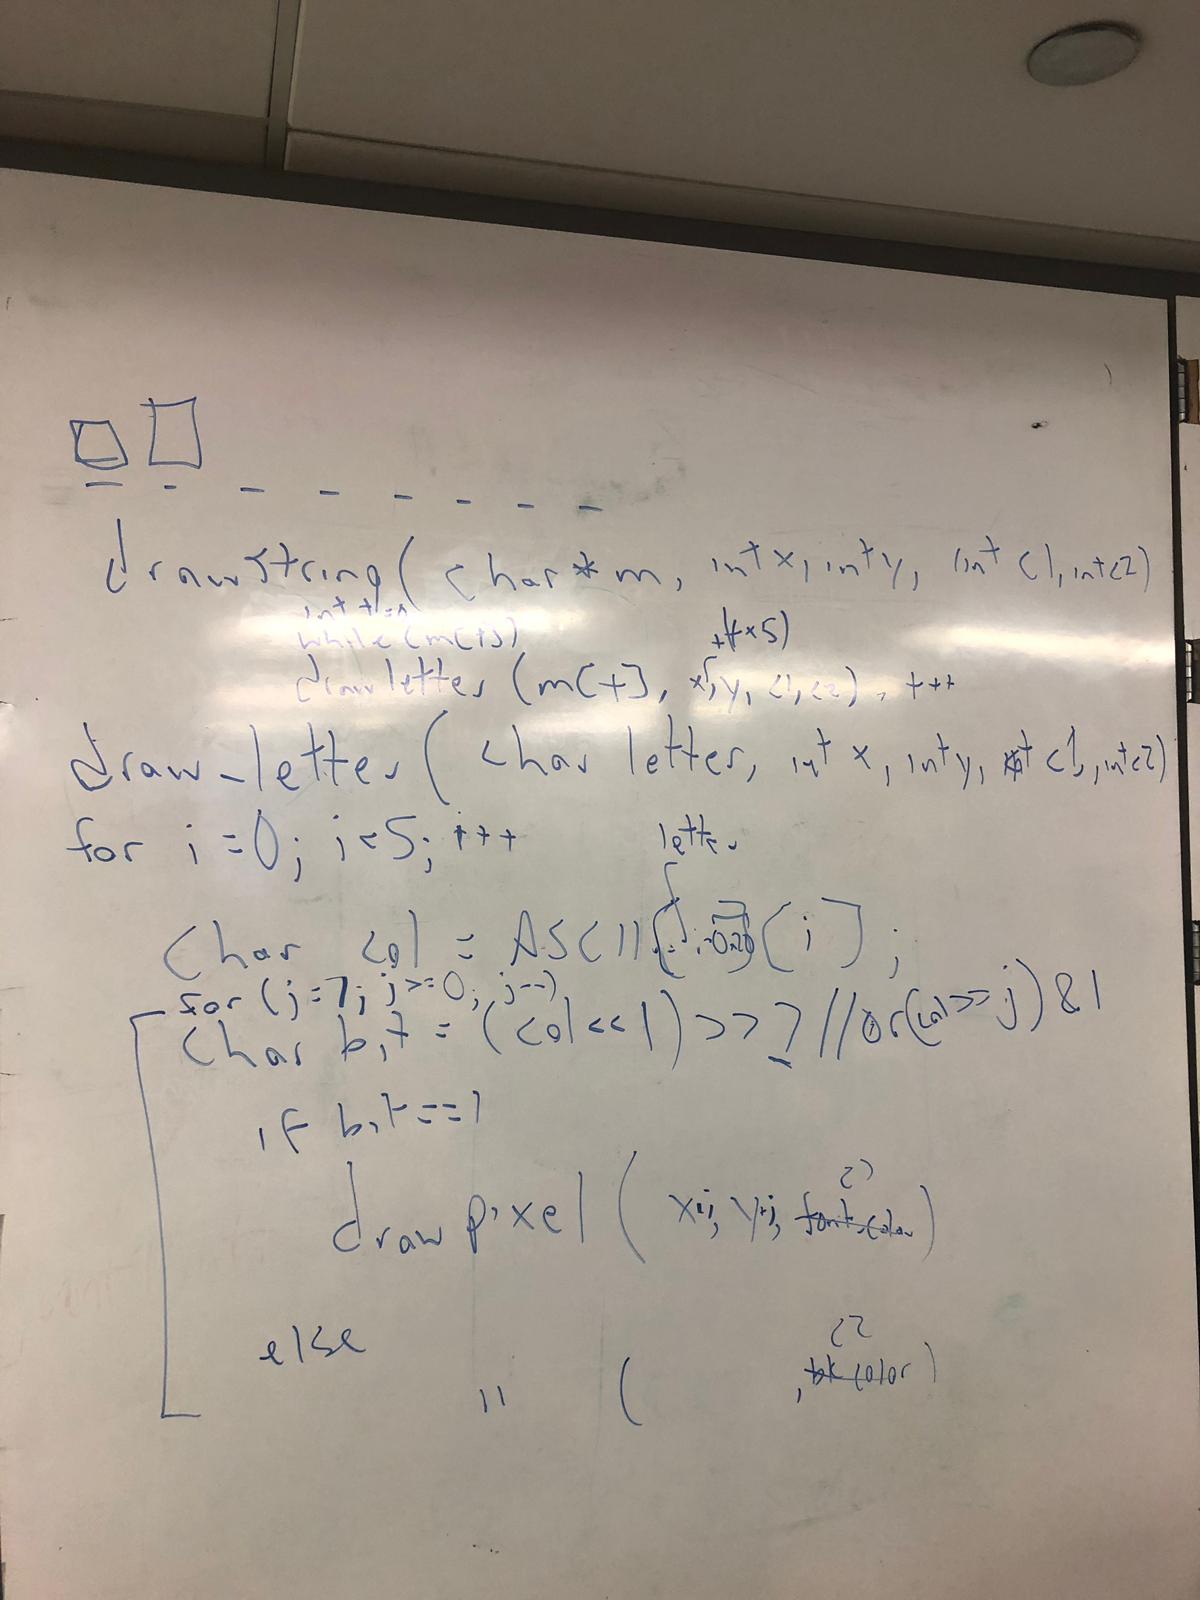 drawString( char*m, int x, int y, int c1, int c2)
int t=0
while (m[t])
+(t*5)
drawletter (m[t], x, y, c1, c2), t++
draw-letter( char letter, int x, int y, int c1, int c2)
for i=0; i<5; i++
letter
char col = ASCII[ -0x20][i];
for (j=7; j>=0; j--)
char bit = (col<<1)>>7 //or(col>>j)&1
if bit==1
c1
drawpixel( x+i, y+j, font color)
else
c2
" ( , bk color)